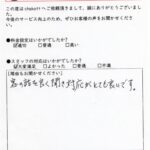 この度はshakottへご依頼頂きまして、誠にありがとうございました。
今後のサービス向上のため、ぜひお客様の声をお聞かせください。
●料金設定はいかがでしたか?
適切 □普通 □高い
●スタッフの対応はいかがでしたか?
大変満足 □よかった □普通 □不満
【理由もお聞かせください】
客の話を良く聞き対応がとても良いです。